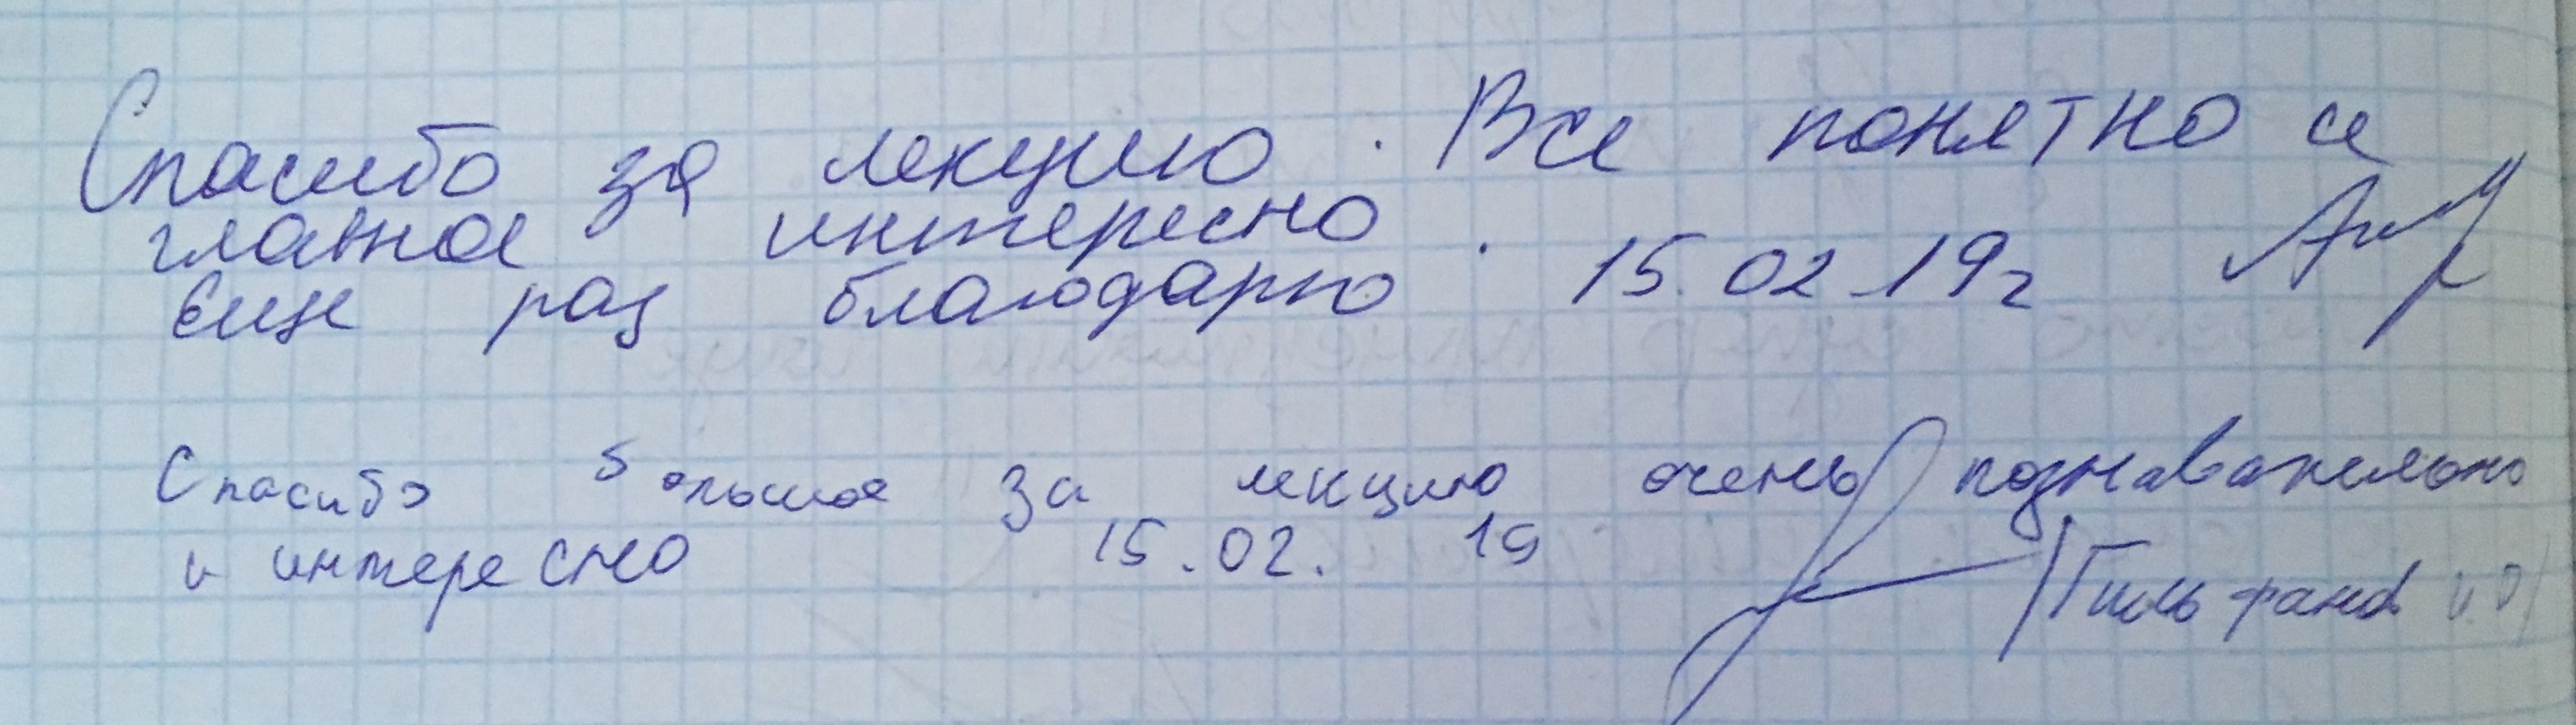 Спасибо за лекцию. Все понятно и
главное интересно.
Еще раз благодарю 15.02.19г
Спасибо большое за лекцию очень познавательно
и интересно 15.02. 19